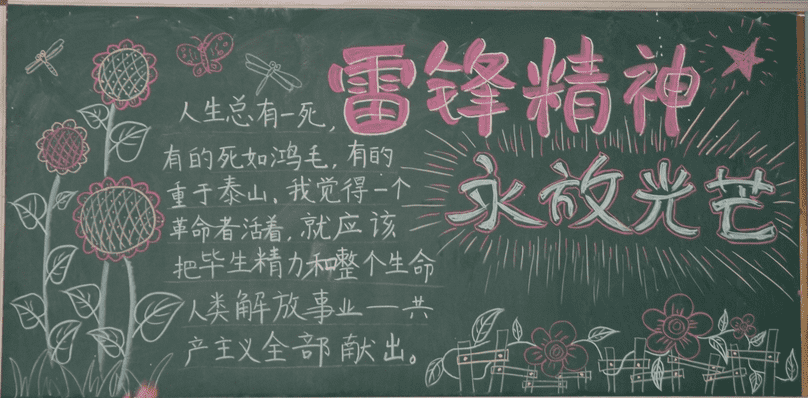 雷锋精神
永放光芒
人生总有一死，
有的死如鸿毛，有的
重于泰山，我觉得一个
革命者活着，就应该
把毕生精力和整个生命
人类解放事业——共
产主义全部献出。